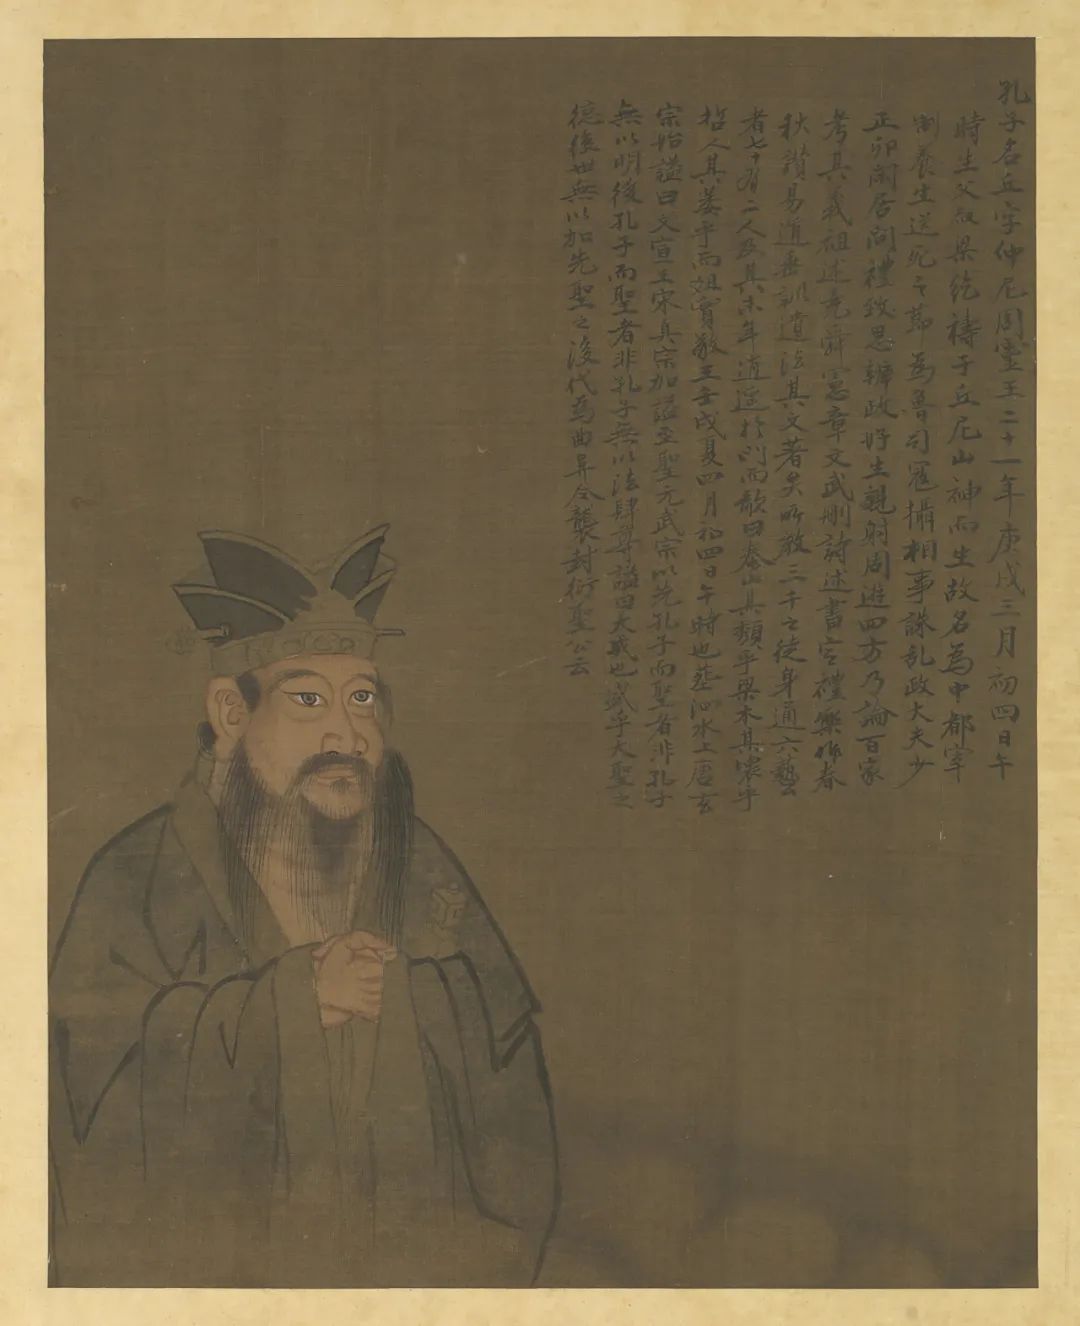 孔子名丘字仲尼周靈王二十一年庚戌三月初四日午
時生父叔梁紇禱于丘尼山神而生故名為中都宰
制養生送死之節為魯司寇攝相事誅亂政大夫少
正卯閑居問禮致思辨政好生觀射周遊四方乃論百家
考其義祖述堯舜憲章文武刪詩述書定禮樂作春
秋讚易道垂訓遺法其文著矣所教三千之徒身通六藝
者七十有二人及其末年逍遥於門而歌曰泰山其頹乎梁木其壞乎
哲人其萎乎而殂實敬王壬戌夏四月初四日午時也塟泗水上唐玄
宗始諡曰文宣王宋真宗加諡至聖元武宗以先孔子而聖者非孔子
無以明後孔子而聖者非孔子無以法肆尊諡曰大成也盛乎大聖之
德後世無以加先聖之後代為曲阜令襲封衍聖公云